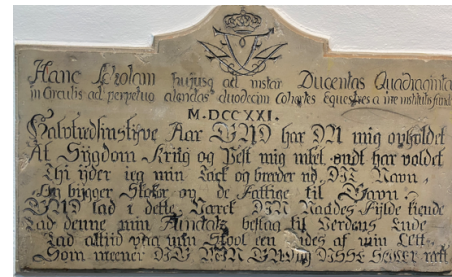 Hanc Scholam hujusq ad instar Ducentas Quadraginta
in Circulis ad perpetuo alendas duodecim Cohortes Equestres a me institutis fund
M.DCCXXI.
Halvtrediesindstyve Aar GUD har DU mig opholdet
At Sygdom Krig og Pest mig intet ondt har voldet
Thi yder ieg min Tack og breeder ud DIT Navn
Og bygger Skoler op de Fattige til Gavn
GUD lad i dette Værck DIN Naades Fylde kiende
Lad denne min Fundatz bestaa til Verdens Ende
Lad altid paa min Stool een findes af min Æt
Som meener DIG MIN GUD og DISSE SKOLER rætt